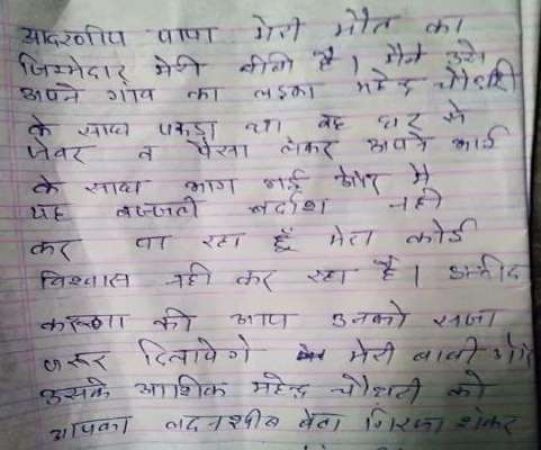 आदरणीय पापा मेरी मौत का
जिम्मेदार मेरी बीवी है। मैंने उसे
अपने गांव का लडका महेन्द्र चौधरी
के साथ पकड़ा था वह घर से
जेवर व पैसा लेकर अपने भाई
के साथ भाग गई और मै
यह बज्जती बर्दाश नही
कर पा रहा हूँ मेरा कोई
विश्वास नही कर रहा है। उम्मीद
करूगा की आप उनको सजा
जरूर दिलायेगे मेरी बीवी और
उसके आशिक महेन्द्र चौधरी को
आपका बदनशीब बेटा गिरजा शंकर